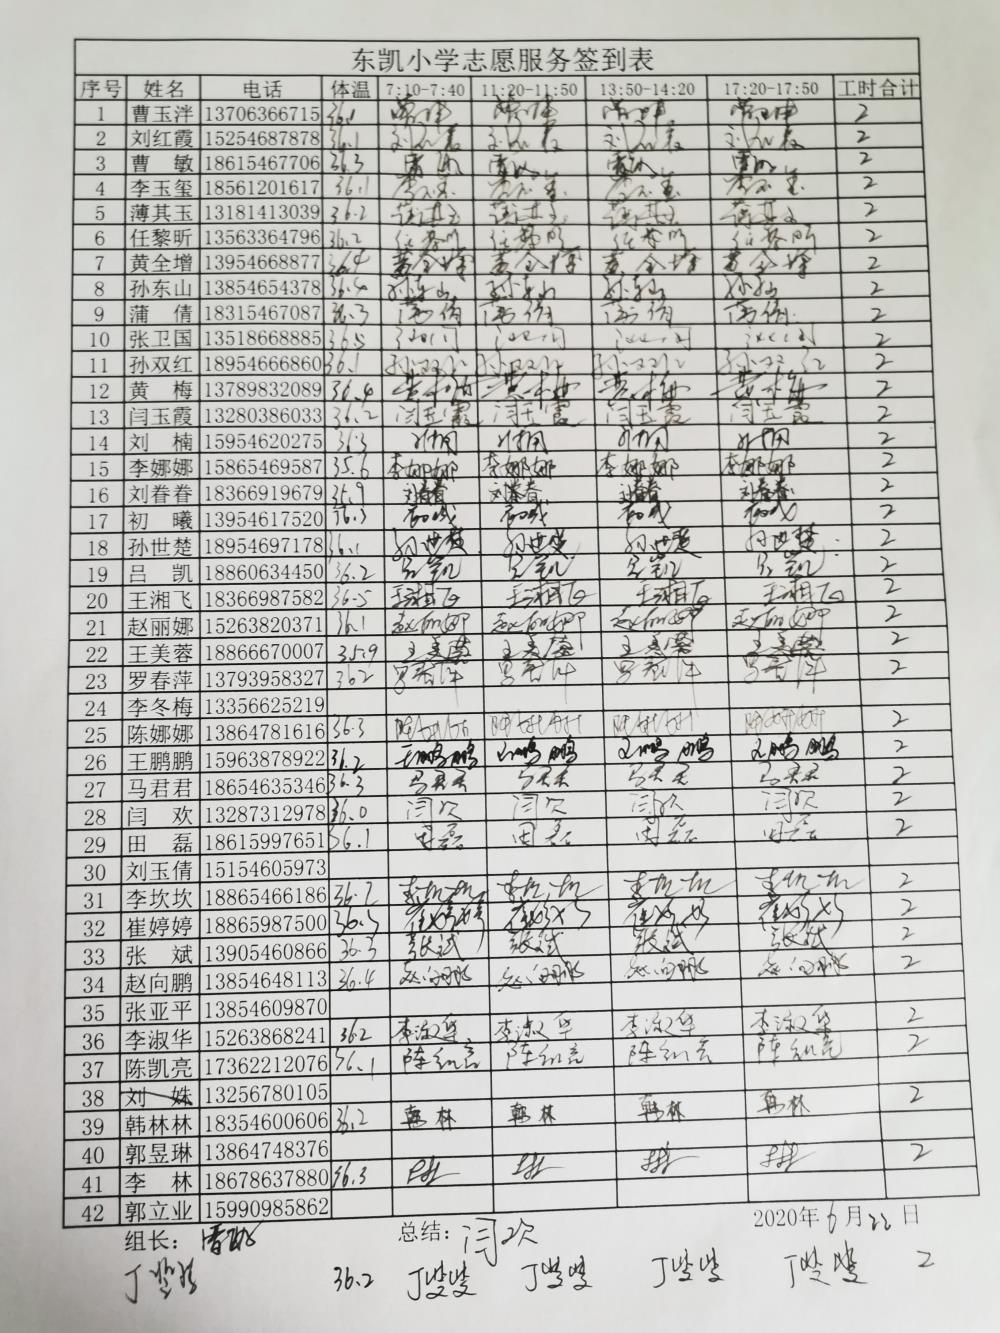 东凯小学志愿服务签到表
序号 姓名 电话 体温 7:10-7:40 11:20-11:50 13:50-14:20 17:20-17:50 工时合计
1 曹玉泮 13706366715 36.1 2
2 刘红霞 15254687878 36.1 刘红霞 刘红霞 刘红霞 刘红霞 2
3 曹敏 18615467706 36.3 曹敏 曹敏 曹敏 曹敏 2
4 李玉玺 18561201617 36.1 李玉玺 李玉玺 李玉玺 李玉玺 2
5 薄其玉 13181413039 36.2 薄其玉 薄其玉 薄其玉 薄其玉 2
6 任黎昕 13563364796 36.2 任黎昕 任黎昕 任黎昕 任黎昕 2
7 黄全增 13954668877 36.4 黄全增 黄全增 黄全增 黄全增 2
8 孙东山 13854654378 36.4 孙东山 孙东山 孙东山 孙东山 2
9 蒲倩 18315467087 36.3 蒲倩 蒲倩 蒲倩 蒲倩 2
10 张卫国 13518668885 36.5 2
11 孙双红 18954666860 36.1 孙双红 孙双红 孙双红 孙双红 2
12 黄梅 13789832089 36.4 黄梅 黄梅 黄梅 黄梅 2
13 闫玉霞 13280386033 36.2 闫玉霞 闫玉霞 闫玉霞 闫玉霞 2
14 刘楠 15954620275 36.3 刘楠 刘楠 刘楠 刘楠 2
15 李娜娜 15865469587 35.6 李娜娜 李娜娜 李娜娜 李娜娜 2
16 刘眷眷 18366919679 35.9 刘眷眷 刘眷眷 刘眷眷 刘眷眷 2
17 初曦 13954617520 36.3 2
18 孙世楚 18954697178 36.1 孙世楚 孙世楚 孙世楚 孙世楚 2
19 吕凯 18860634450 36.2 吕凯 吕凯 吕凯 吕凯 2
20 王湘飞 18366987582 36.5 王湘飞 王湘飞 王湘飞 王湘飞 2
21 赵丽娜 15263820371 36.1 赵丽娜 赵丽娜 赵丽娜 赵丽娜 2
22 王美蓉 18866670007 35.9 王美蓉 王美蓉 王美蓉 王美蓉 2
23 罗春萍 13793958327 362 罗春萍 罗春萍 罗春萍 罗春萍 2
24 李冬梅 13356625219
25 陈娜娜 13864781616 36.3 陈娜娜 陈娜娜 陈娜娜 陈娜娜 2
26 王鹏鹏 15963878922 36.2 王鹏鹏 王鹏鹏 王鹏鹏 王鹏鹏 2
27 马君君 18654635346 36.3 马君君 马君君 马君君 马君君 2
28 闫欢 13287312978 36.0 闫欢 闫欢 闫欢 闫欢 2
29 田磊 18615997651 36.1 田磊 田磊 田磊 田磊 2
30 刘玉倩 15154605973
31 李坎坎 18865466186 36.2 李坎坎 李坎坎 李坎坎 李坎坎 2
32 崔婷婷 18865987500 36.5 崔婷婷 崔婷婷 崔婷婷 崔婷婷 2
33 张斌 13905460866 36.3 张斌 张斌 张斌 张斌 2
34 赵向鹏 13854648113 36.4 赵向鹏 赵向鹏 赵向鹏 赵向鹏 2
35 张亚平 13854609870
36 李淑华 15263868241 36.2 李淑华 李淑华 李淑华 李淑华 2
37 陈凯亮 17362212076 36.1 陈凯亮 陈凯亮 陈凯亮 陈凯亮 2
38 刘姝 13256780105
39 韩林林 18354600606 36.2 韩林 韩林 韩林 韩林 2
40 郭昱琳 13864748376
41 李林 18678637880 36.3 李林 李林 李林 李林 2
42 郭立业 15990985862
组长： 曹敏 总结： 闫欢 2020年6月22日
36.2 2